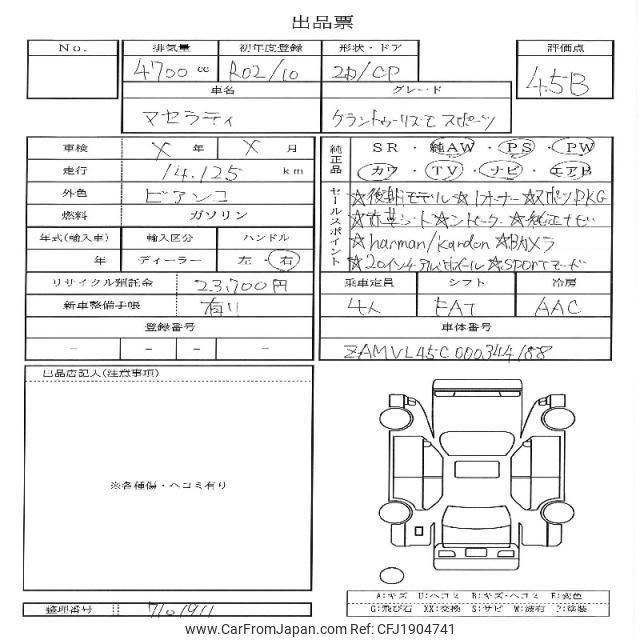 出品票
No.
排気量 初年度登録 形状・ドア 評価点
4700 cc R02/10 2D/CP 4.5B
車名 グレード
マセラティ グラントゥーリズモ スポーツ
車検 X 年 X 月
走行 14,125 km
外色 ビアンコ
燃料 ガソリン
年式(輸入車) 輸入区分 ハンドル
年 ディーラー 左・右
リサイクル預託金 23,700円
新車整備手帳 有り
登録番号
- - - -
純正品
SR・純AW・PS・PW
カワ・TV・ナビ・エアB
セールスポイント
☆後期モデル☆1オーナー☆スポーツPKG
☆赤革シート☆シートヒーター☆純正ナビ
☆harman/kardon☆Bカメラ
☆20インチアルミホイール☆SPORTモード
乗車定員 シフト 冷房
4人 FAT AAC
車体番号
ZAMVL45C000344188
出品店記入(注意事項)
※各種傷・ヘコミ有り
A:キズ U:ヘコミ B:キズ・ヘコミ E:変色
G:飛び石 XX:交換 S:サビ W:波有 P:塗装
整理番号 7101911
www.CarFromJapan.com - CFJ1904741